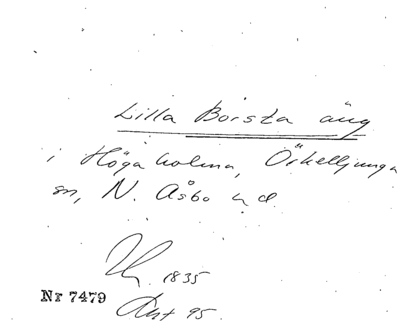 Lilla Borsta äng
i Höga holma, Örkelljunga
sn, N. Åsbo hd.
1835
Nr 7479
Akt 95.